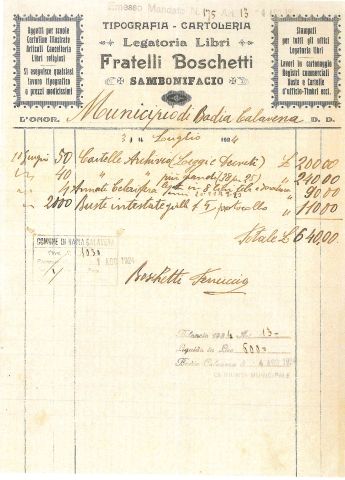 Emesso Mandato N° 175 Art 13
TIPOGRAFIA - CARTOLERIA
Legatoria Libri
Fratelli Boschetti
SAMBONIFACIO
Oggetti per scuole
Cartoline illustrate
Articoli Cancelleria
Libri religiosi
Si eseguisce qualsiasi
lavoro tipografico
a prezzi modicissimi
Stampati
per tutti gli uffici
Legatoria libri
Lavori in cartonaggio
Registri commerciali
Buste e Cartelle
d'ufficio-Timbri ecc.
L'ONOR. Municipio di Badia Calavena D. D.
Luglio 1924
Giugno 50 Cartelle Archivio (Leggi e Decreti) £ 200.00
40 " " più grandi (38 25) " 240.00
4 Annate 90.00
2000 Buste intestate protocollo " 110.00
Totale £ 640,00
COMUNE DI BADIA CALAVENA
1030
1 AGO 1924
Boschetti Ferruccio
Bilancio 1924 Art 13
Liquida in Lire 600
Badia Calavena 4 AGO 1924
LA GIUNTA MUNICIPALE